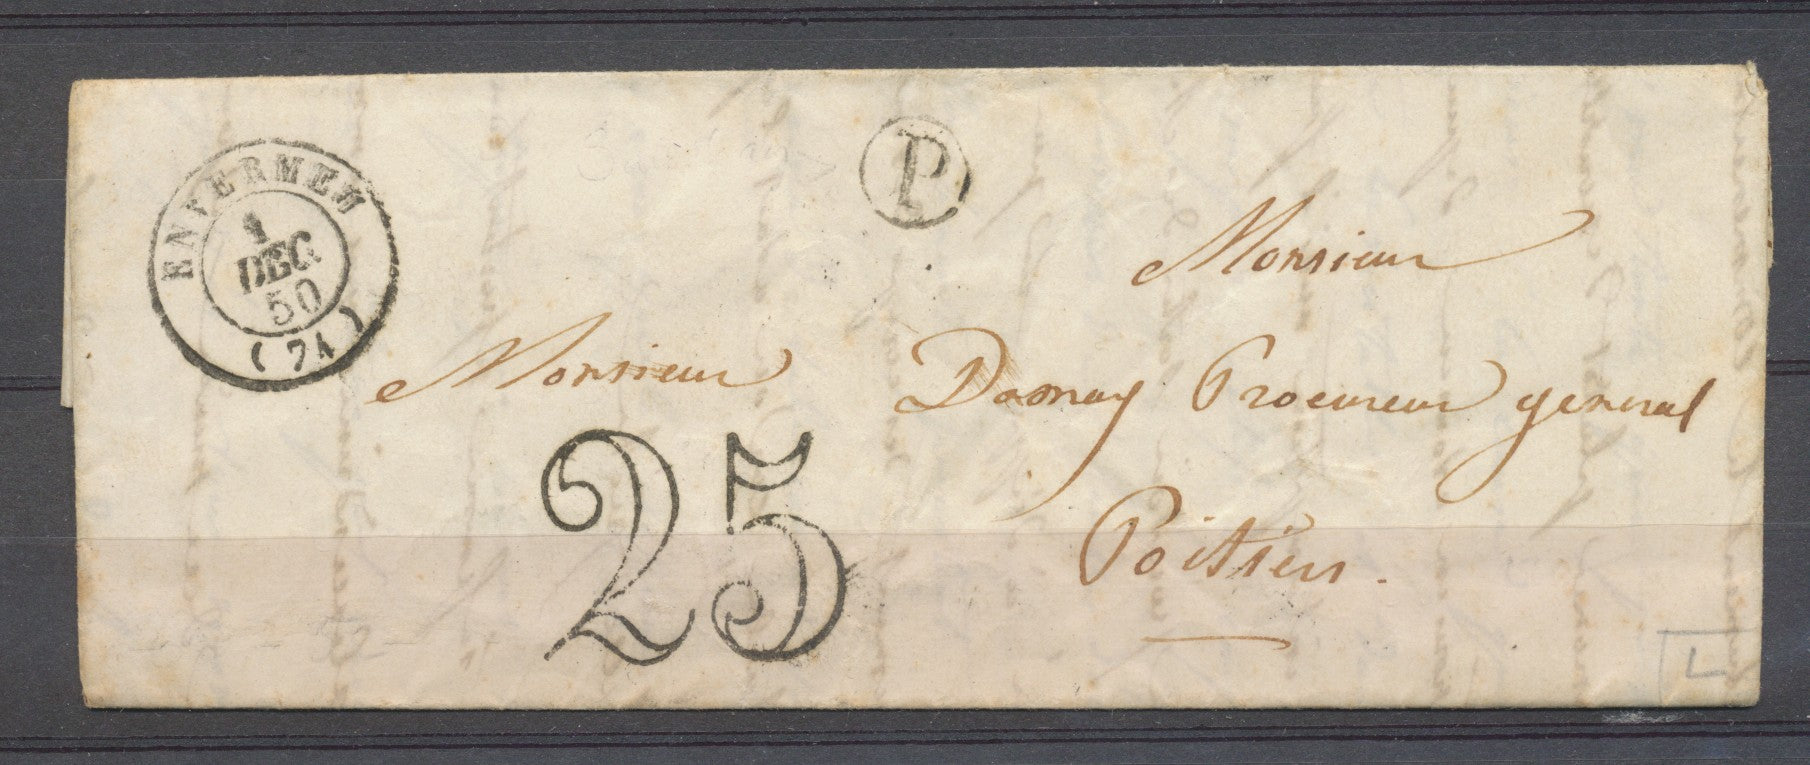 P
ENVERMEU
1
DEC.
50
(74)
Monsieur
Monsieur Damay Procureur general
25
Poitiers.
L